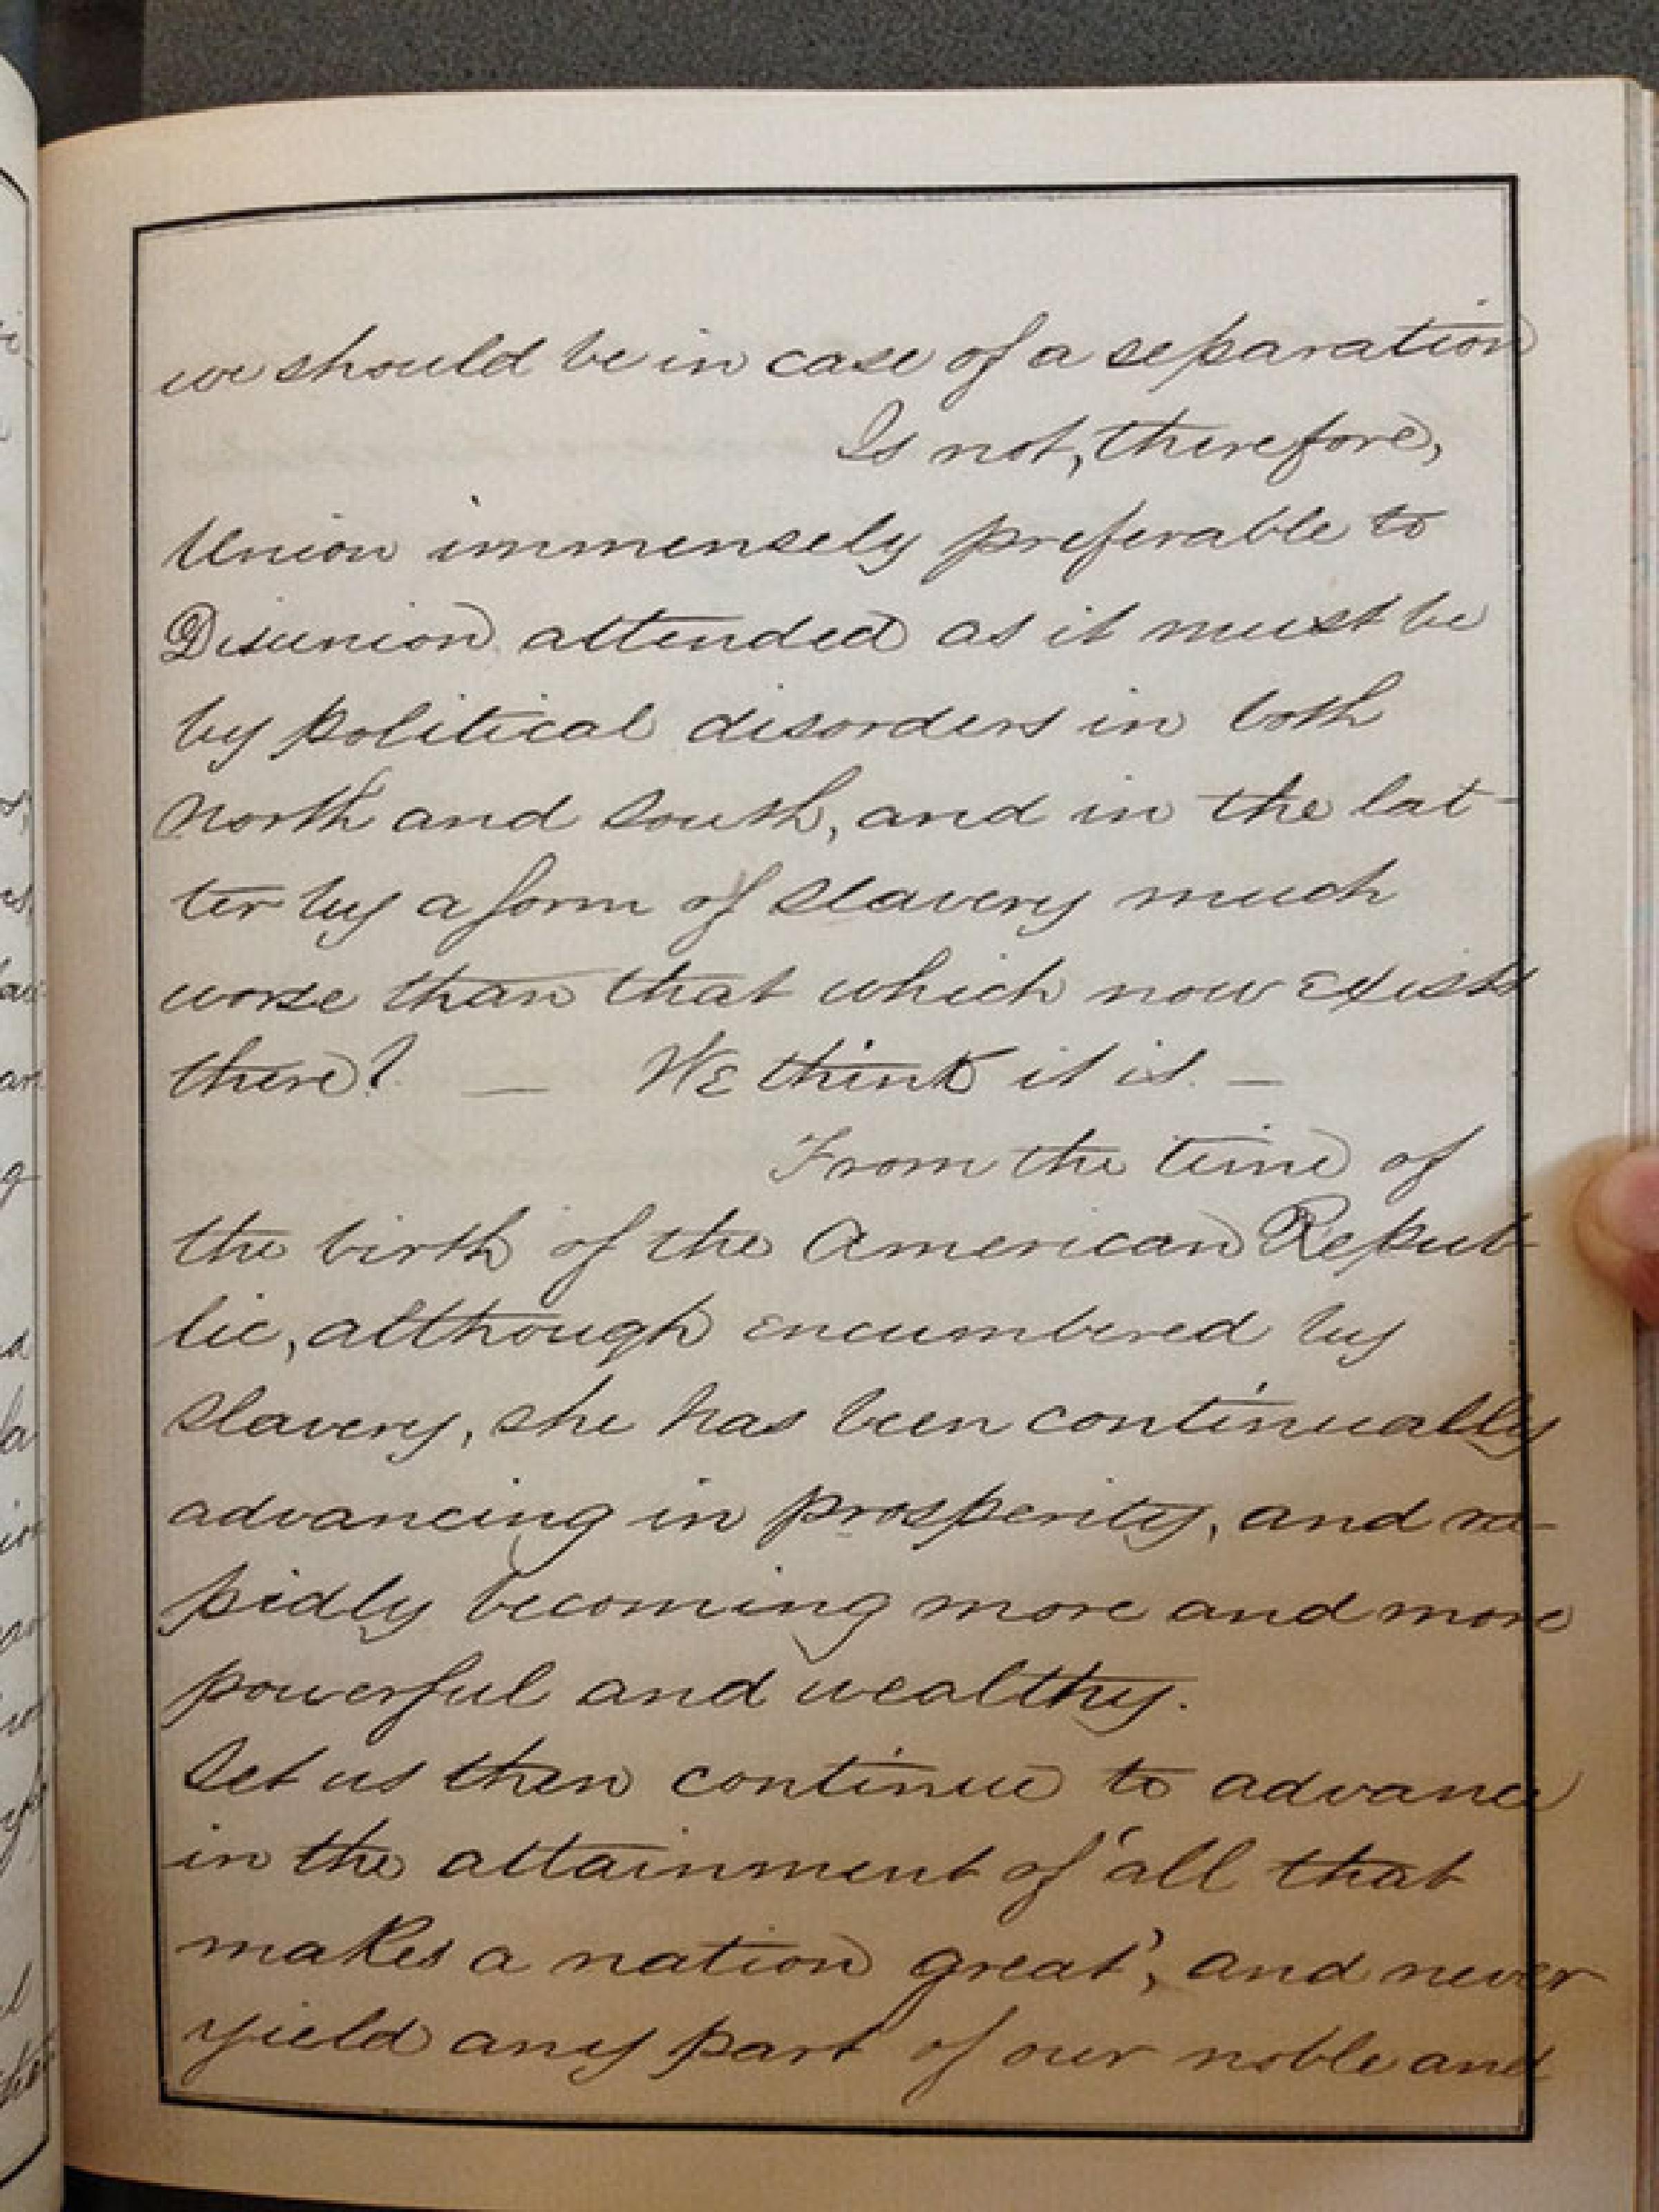 we should be in case of a separation
Is not, therefore,
Union immensely preferable to
Disunion attended as it must be
by political disorders in both
North and South, and in the lat-
ter by a form of slavery much
worse than that which now exists
there? — We think it is. —
From the time of
the birth of the American Repub-
lic, although encumbered by
slavery, she has been continually
advancing in prosperity, and ra-
pidly becoming more and more
powerful and wealthy.
Let us then continue to advance
in the attainment of 'all that
makes a nation great', and never
yield any part of our noble and